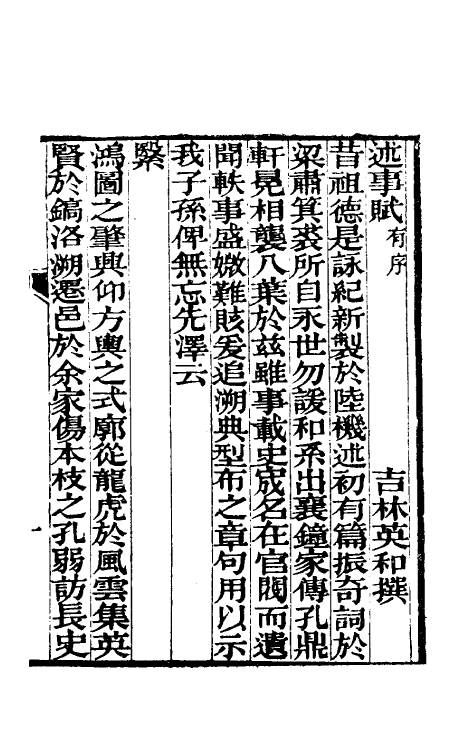 述事賦有序　吉林英和撰
昔祖德是詠紀新製於陸機述初有篇振奇詞於
梁肅箕裘所自永世勿諼和系出襄鐘家傳孔鼎
軒冕相襲八葉於茲雖事載史宬名在官閥而遺
聞軼事盛媺難賅爰追溯典型布之章句用以示
我子孫俾無忘先澤云
繄
鴻圖之肇興仰方輿之式廓從龍虎於風雲集英
賢於鎬洛溯遷邑於余家傷本枝之孔弱訪長史